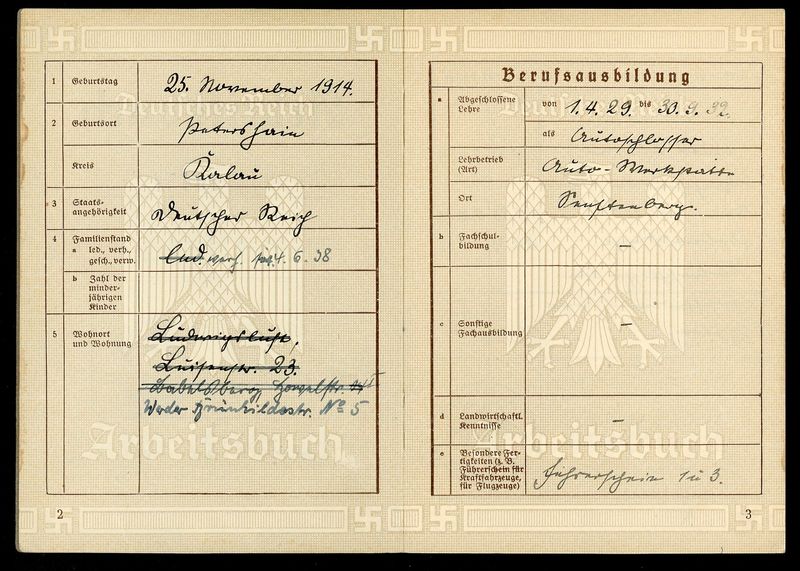 1 Geburtstag 25. November 1914.
2 Geburtsort Petershain
Kreis Kalau
3 Staats-
angehörigkeit Deutscher Reich
4 Familienstand
a led., verh.,
gesch., verw. Led. verh. 4. 6. 38
b Zahl der
minder-
jährigen
Kinder
5 Wohnort
und Wohnung Ludwigslust,
Luisenstr. 23.
Babelsberg,
Werder No 5
Deutsches Reich
Arbeitsbuch
2
Berufsausbildung
a Abgeschlossene
Lehre von 1.4.29. bis 30.9.32.
als Autoschlosser
Lehrbetrieb
(Art) Auto-Werkstatt
Ort Senftenberg.
b Fachschul-
bildung —
c Sonstige
Fachausbildung —
d Landwirtschaftl.
Kenntnisse —
e Besondere Fer-
tigkeiten (z. B.
Führerschein für
Kraftfahrzeuge,
für Flugzeuge) Führerschein 1 u 3.
Deutsches Reich
Arbeitsbuch
3